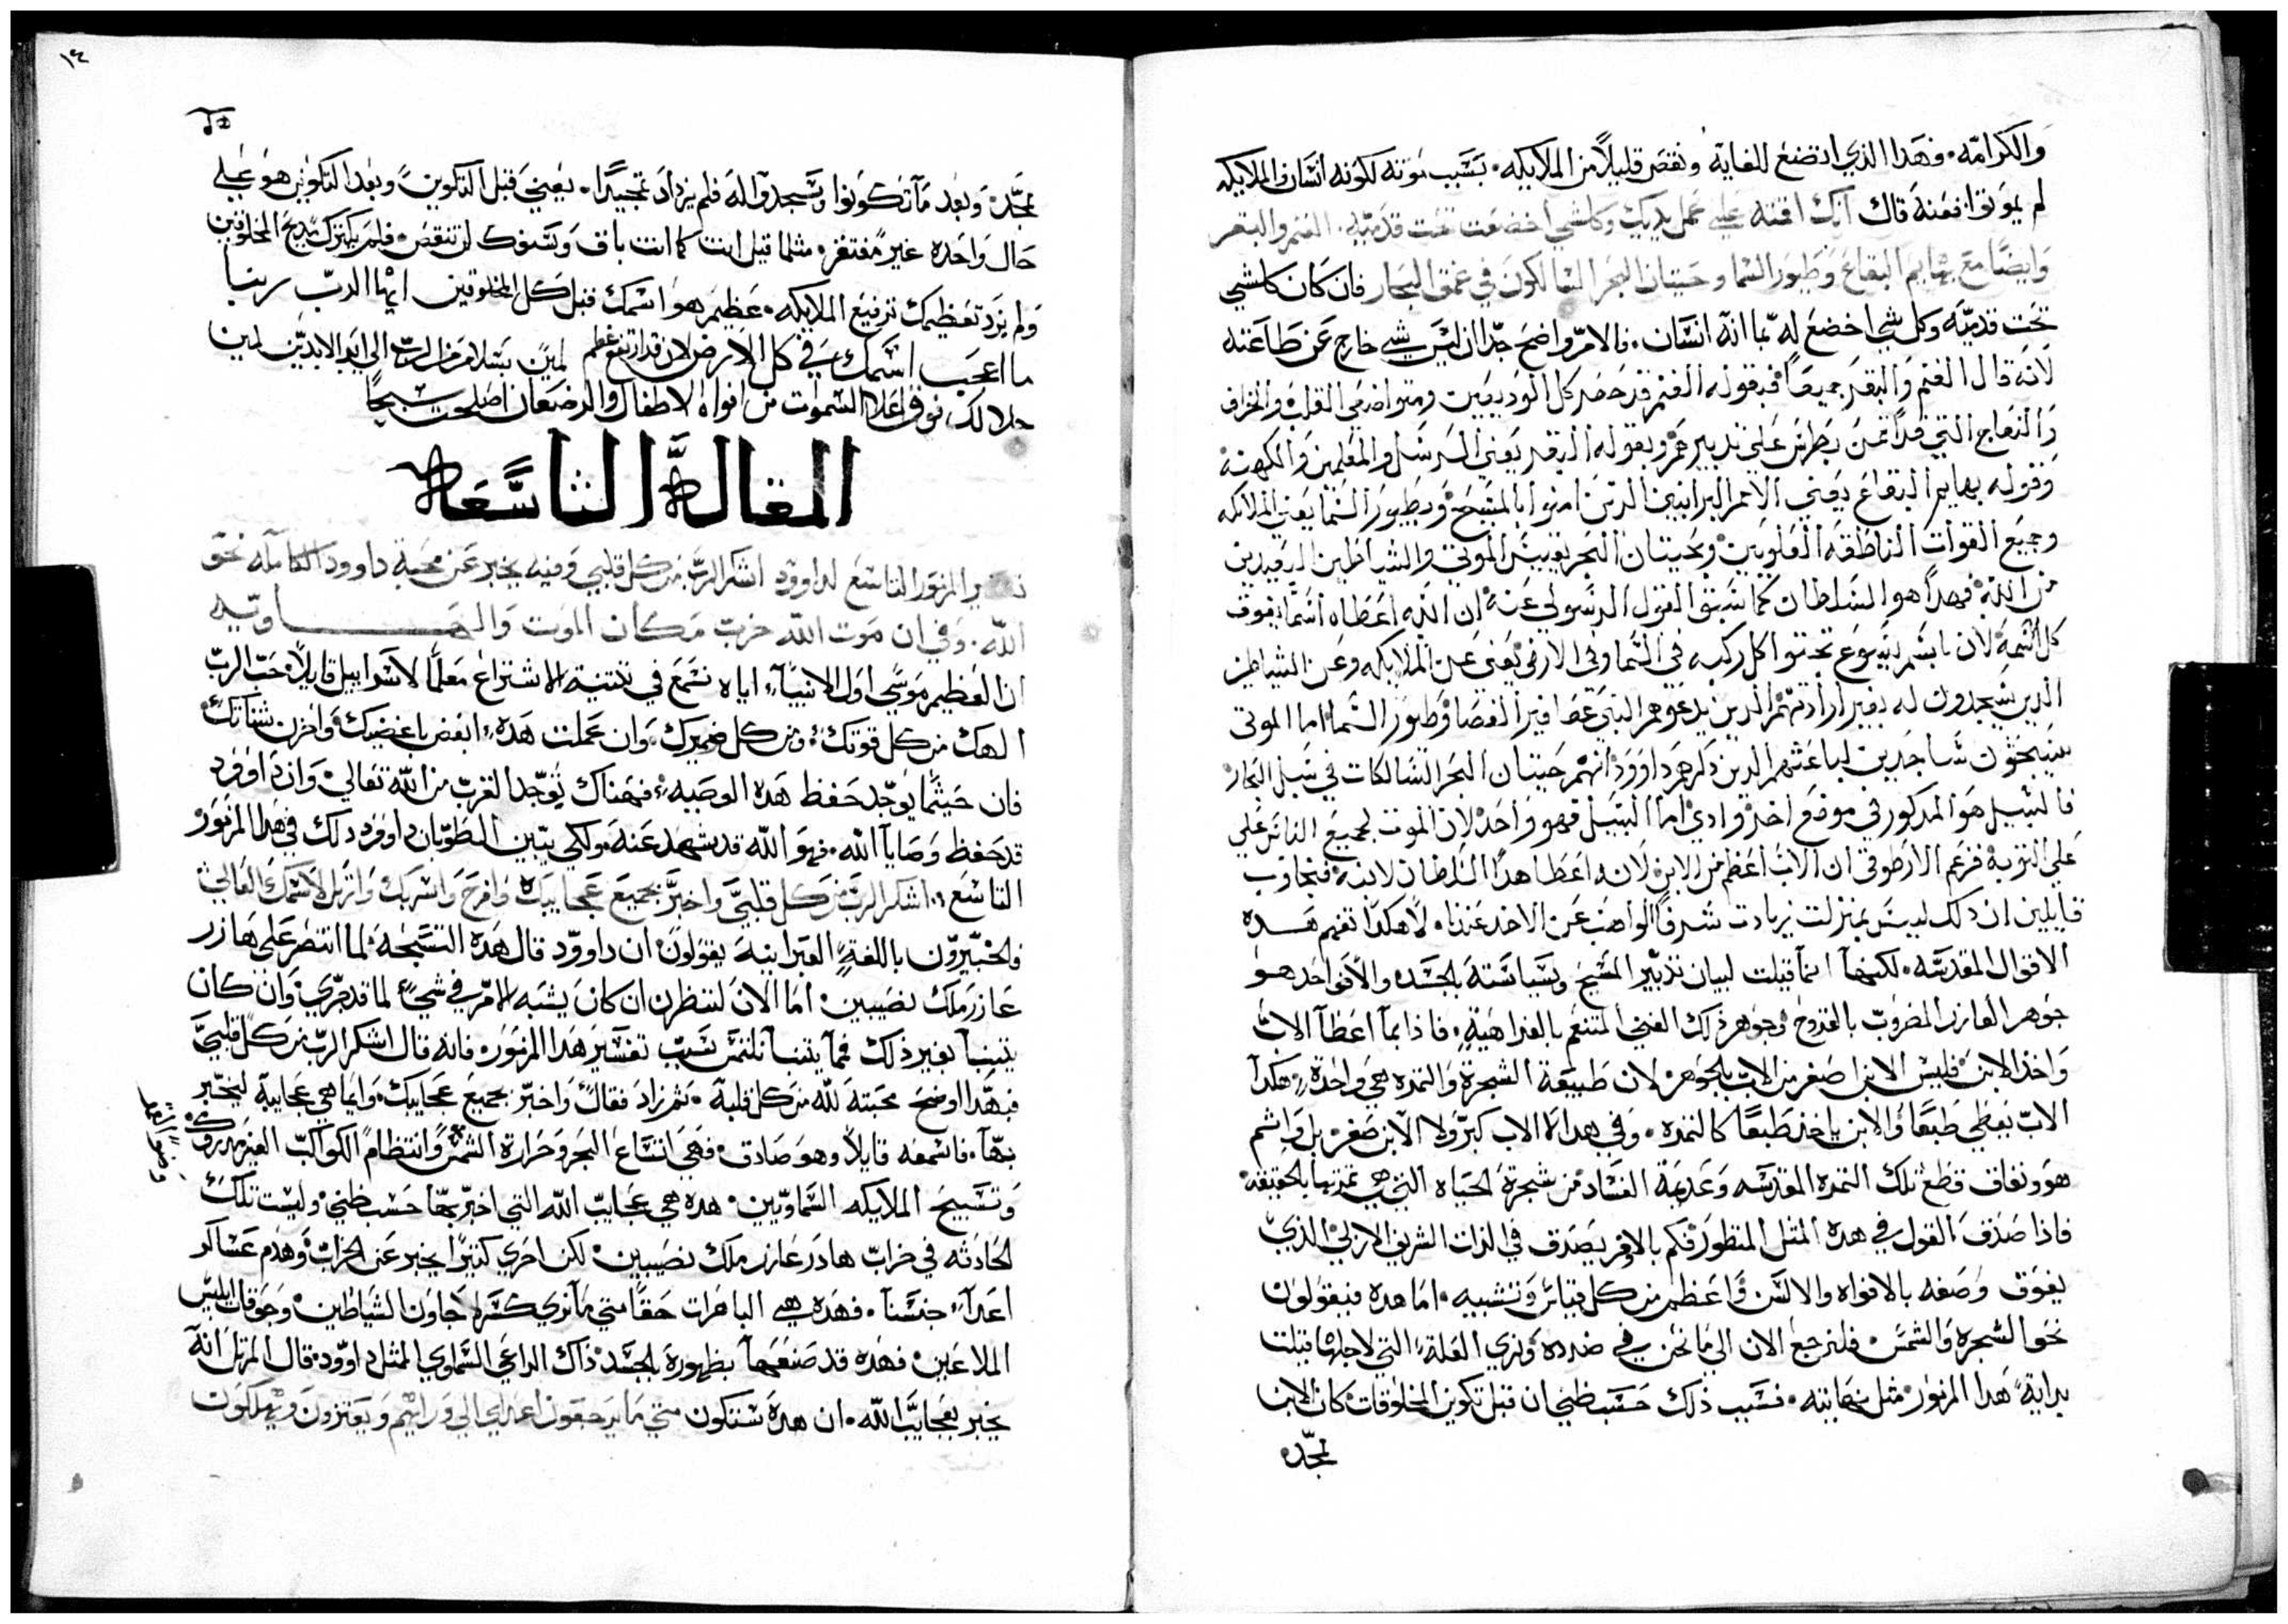 والكرامه. فهذا الذي اتضع للغاية ونقص قليلاً من الملايكه. بسبب موته لكونه انسان والملايكه
لم يموتوا فعنه قال انك اقمته علي عمل يديك وكلشي اخضعت تحت قدميه. الغنم والبقر
وايضًا مع بهايم البقاع وطيور السما وحيتان البحر السالكون في عمق البحار فان كان كلشي
تحت قدميه وكل شي اخضع له بما انه انسان. فالامر واضح جدًا ان ليس شي خارج عن طاعته
لانه قال الغنم والبقر جميعًا فبقوله الغنم قد حصر كل الوديعين ومتواضعي القلب والخراف
والنعاج التي قد اتمن بطرس علي تدبيرهم وبقوله البقر يعني الرسل والمعلمين والكهنه
وقوله بهايم البقاع يعني الامم البرانيين الدين امنوا بالمسيح وبطيور السما يعني الملايكه
وجميع القوات الناطقه العلويين وبحيتان البحر يعني الموتي والشياطين البعيدين
من الله فهدا هو السلطان كما سبق القول الرسولي عنه ان الله اعطاه اسمًا يفوق
كل اسم لان باسم يسوع تجتوا كل ركبه في السما وفي الارض يعني عن الملايكه وعن الشياطين
الدين يسجدون له بغير ارادتهم الدين يدعوهم النبي عصافير الفضا وطيور السما اما الموتي
سيبحثون ساجدين لباعثهم الدين دكرهم داوود انهم حيتان البحر السالكات في سبل البحار
فالسبيل هو المدكور في موضع اخر وادي اما السبيل فهو واحد لان الموت لجميع الناس علي
علي التربه فزعم الارطوقي ان الاب اعظم من الابن لانه اعطا هدا السلطان لابنه فنجاوب
قايلين ان دلك ليس بمنزلت زيادت شرف الواهب عن الاخد عندنا. لا هكدا تفهم هده
الاقوال المقدسه. لكنها انما قيلت لبيان تدبير المسيح وسياسته بالجسد والافواحد هو
جوهر العازر المضروب بالقروح وجوهر دلك الغني المتنعم بالفراهية. فاذا بما اعطا الاب
واخد الابن فليس الابن اصغر من الاب بالجوهر لان طبيعة الشجرة والتمره هي واحدة. هكدا
الاب يعطي طبعًا والابن ياخذ طبعًا كالتمره. وفي هدا لا الاب كبر ولا الابن صغر بل واسم
هو ونفاق قطع تلك التمره المقدسه وعديمة الفساد من شجرة الحياه التي هي تمرتها بالحقيقه
فاذا صدق القول في هده المثل المنظور فكم بالاوفر يصدق في الذات الشريف الازلي الدي
يفوق وصفه بالافواه والالسن واعظم من كل قياس وتشبيه. اما هده فبقولون
نحو الشجره والشمس فلنرجع الان الي ما نحن في صدده ونري العلة التي لاجلها قيلت
بداية هدا المزمور مثل نهايته. فسبب ذلك حسب ظني ان قبل تكوين المخلوقات كان الابن
ممجده
١٤
ممجده وبعد ما تكونوا وسجدوا له فلم يزداد تمجيدًا. يعني قبل التكوين وبعد التكوين هو علي
حال واحده غير مفتقر مثلما قيل انت كما انت باق وسنوك لن تنقص فلم يكترك مديح المخلوقين
ولم يزد تعظيمك ترفيع الملايكه. عظيم هو اسمك قبل كل المخلوقين ايها الرب ربنا
ما اعجب اسمك في كل الارض لان قد ارتفع عظم
جلالك فوق اعلا السموات من افواه الاطفال والرضعان اصلحت سبحًا
امين بسلام من الرب الي ابد الابدين امين
المقالة التاسعة
تفسير المزمور التاسع لداوود اشكر الرب من كل قلبي وفيه يخبر عن محبة داوود الكامله نحو
الله. وفي ان موت الله خرب مكان الموت والهاويه
ان العظيم موسي اول الانبياء اياه نسمع في تثنية الاشتراع معلمًا لاسراييل قايلاً حب الرب
الهك من كل قوتك ومن كل ضميرك. وان عملت هده ابغض باغضيك واخزن شناتك
فان حيثما يوجد حفظ هده الوصيه فهناك يوجد القرب من الله تعالي وان داوود
قد حفظ وصايا الله. فهو الله قد شهد عنه ولكي يتبين الطوبان داوود دلك في هدا المزمور
التاسع. اشكر الرب من كل قلبي واخبر بجميع عجايبك وافرح واسر بك وارتل لاسمك العالي
فالخبيرون باللغة العبرانية يقولون ان داوود قال هده التسبحه لما انتصر علي هازر
عازر ملك نصيبين. اما الان لننظر ان كان يشبه الامر في شي لما قد جري وان كان
يتنبا بغير ذلك فما يتنبا نلتمس سبب تفسير هدا المزمور. فانه قال اشكر الرب من كل قلبي
فبهدا اوضح محبته لله من كل قلبه. ثم زاد فقال واخبر بجميع عجايبك. وايما هي عجايبه ليخبر
بها. فاسمعه قايلاً وهو صادق. فهي اتساع البحر وحرارة الشمس وانتظام الكواكب الغير مدروك
وتسبيح الملايكه السماويين. هده هي عجايب الله التي اخبر بها حسب ظني وليست تلك
الحادثه في خراب هادر عازر ملك نصيبين. لكن اخري كثيرًا يخبر عن الخراب وهدم عساكر
اعدا جنسنا. فهده هي الباهرات حقًا متي ما نري كسر اجاون الشياطين وجوقات ابليس
الملاعين. فهده قد صنعها بظهوره بالجسد ذاك الراعي السماوي الممثل داوود. قال المرتل انه
يخبر بعجايب الله. ان هده ستكون متي ما يرجعون اعداي الي ورايهم ويعثرون ويهلكون